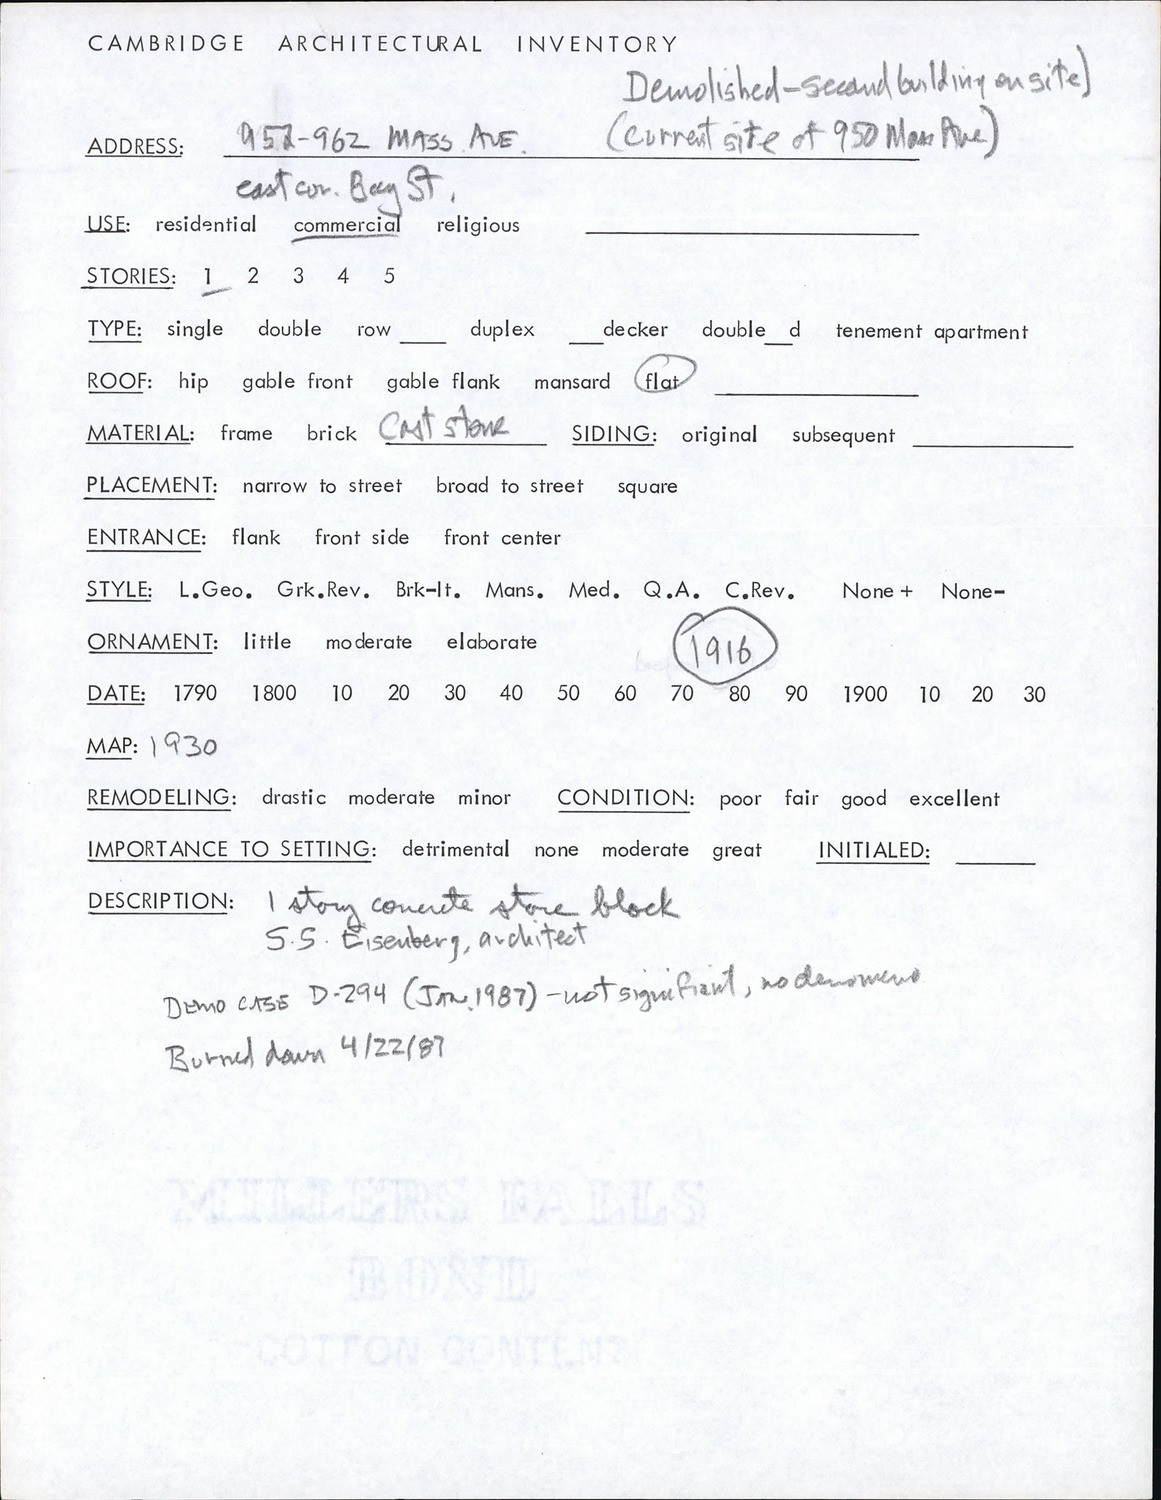 CAMBRIDGE ARCHITECTURAL INVENTORY
Demolished - second building on site)
ADDRESS: 952-962 MASS. AVE. (current site of 950 Mass Ave)
east cor. Bay St.
USE: residential commercial religious
STORIES: 1 2 3 4 5
TYPE: single double row ___ duplex ___decker double__d tenement apartment
ROOF: hip gable front gable flank mansard flat
MATERIAL: frame brick Cast stone SIDING: original subsequent
PLACEMENT: narrow to street broad to street square
ENTRANCE: flank front side front center
STYLE: L.Geo. Grk.Rev. Brk-It. Mans. Med. Q.A. C.Rev. None + None-
ORNAMENT: little moderate elaborate 1916
DATE: 1790 1800 10 20 30 40 50 60 70 80 90 1900 10 20 30
MAP: 1930
REMODELING: drastic moderate minor CONDITION: poor fair good excellent
IMPORTANCE TO SETTING: detrimental none moderate great INITIALED:
DESCRIPTION: 1 story concrete store block
S.S. Eisenberg, architect
Demo CASE D-294 (Jan. 1987) - not significant, no
Burned down 4/22/87
MILLERS FALLS
BOND
COTTON CONTENT